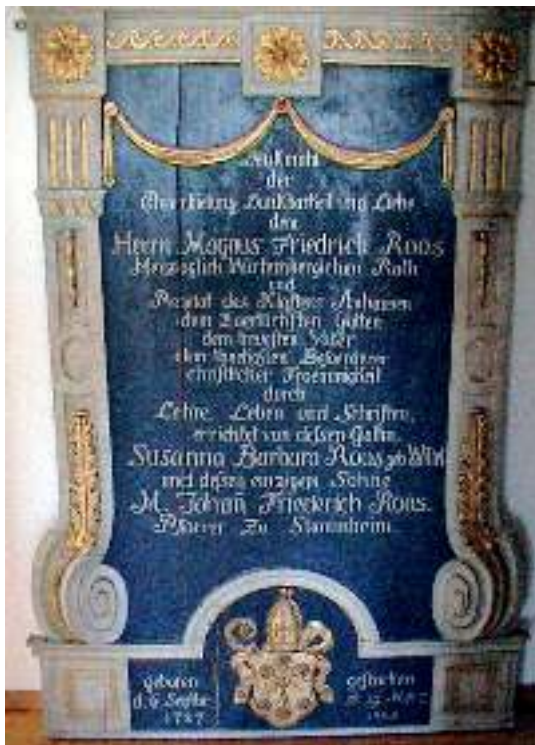 Denkmahl
der
Ehrerbietung Dankbarkeit und Liebe
dem
Herrn Magnus Friedrich Roos
Herzoglich Würtembergischen Rath
und
Praelat des Klosters Anhausen
dem Zaertlichsten Gatten
dem treusten Vater
dem Beförderer
christlicher Froemmigkeit
durch
Lehre, Leben und Schriften,
errichtet von dessen Gattin,
Susanna Barbara Roos geb
und dessen einzigen Sohne
M. Johañ Friederich Roos.
Pfarrer Zu Stammheim
geboren
d. 6 Septbr
1727
gestorben